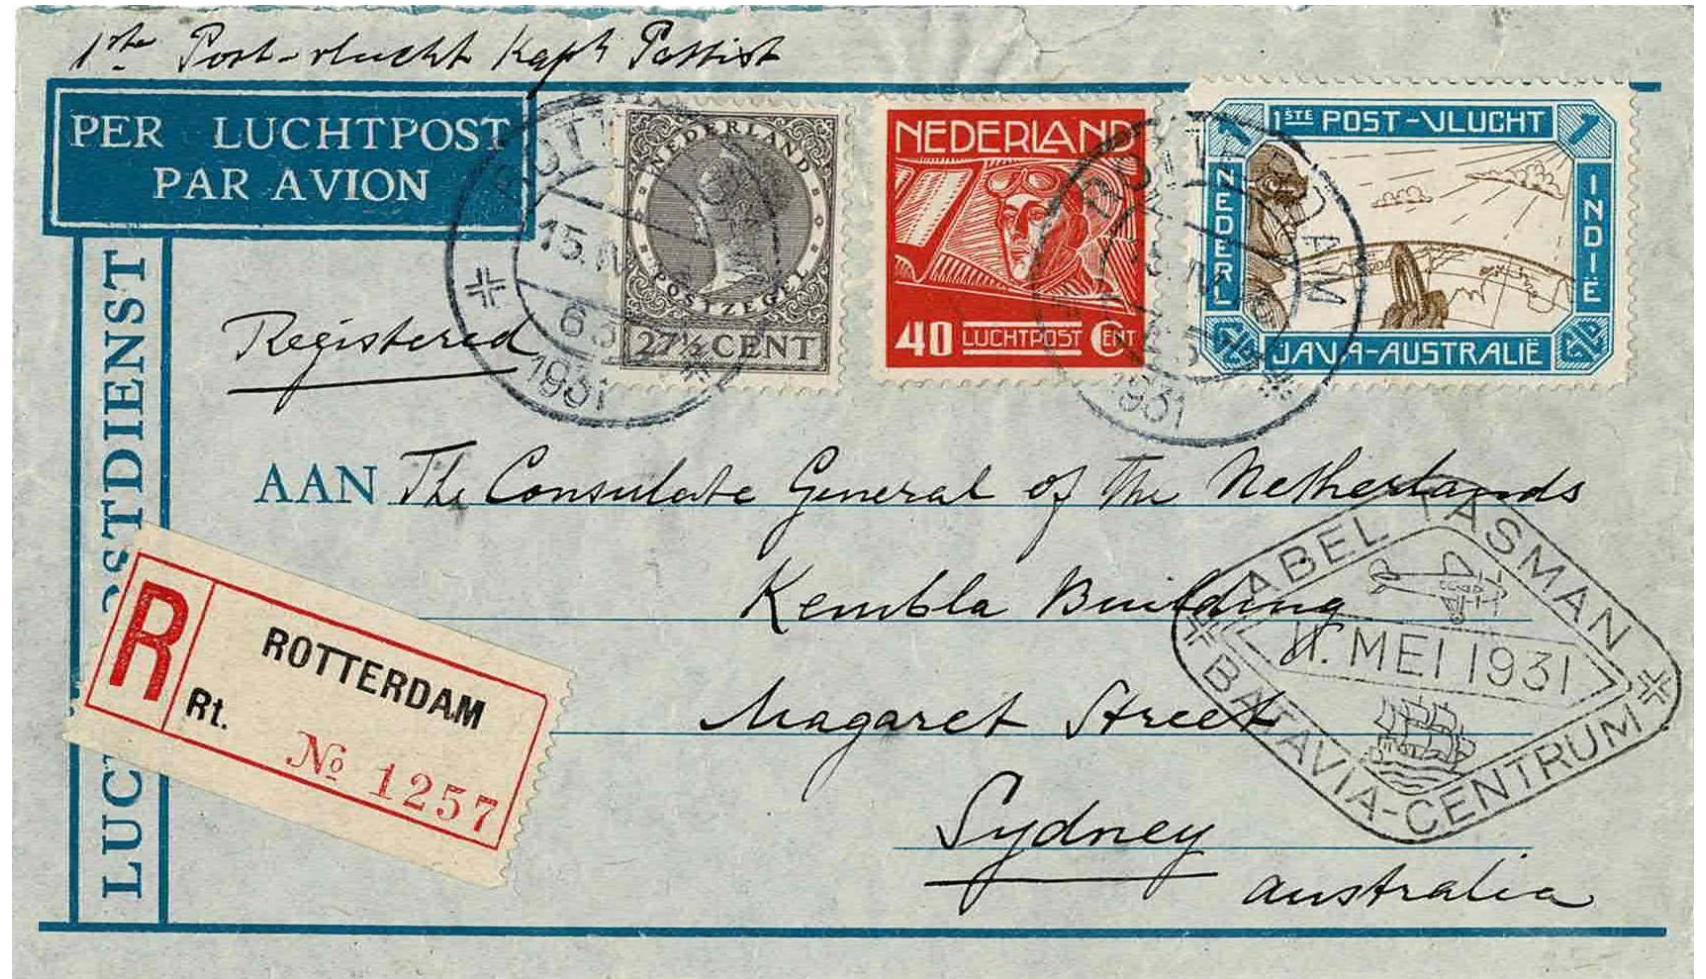 1ste Post-vlucht Kapt Pattist
PER LUCHTPOST
PAR AVION
LUCHTPOSTDIENST
ROTTERDAM
15.IV
1931
NEDERLAND
POSTZEGEL
27½ CENT
NEDERLAND
40 LUCHTPOST CENT
ROTTERDAM
1931
1STE POST-VLUCHT
NEDERL
INDIË
JAVA-AUSTRALIË
Registered
AAN The Consulate General of the Netherlands
Kembla Building
Magaret Street
Sydney
Australia
R
ROTTERDAM
Rt.
№ 1257
ABEL TASMAN
11. MEI 1931
BATAVIA-CENTRUM